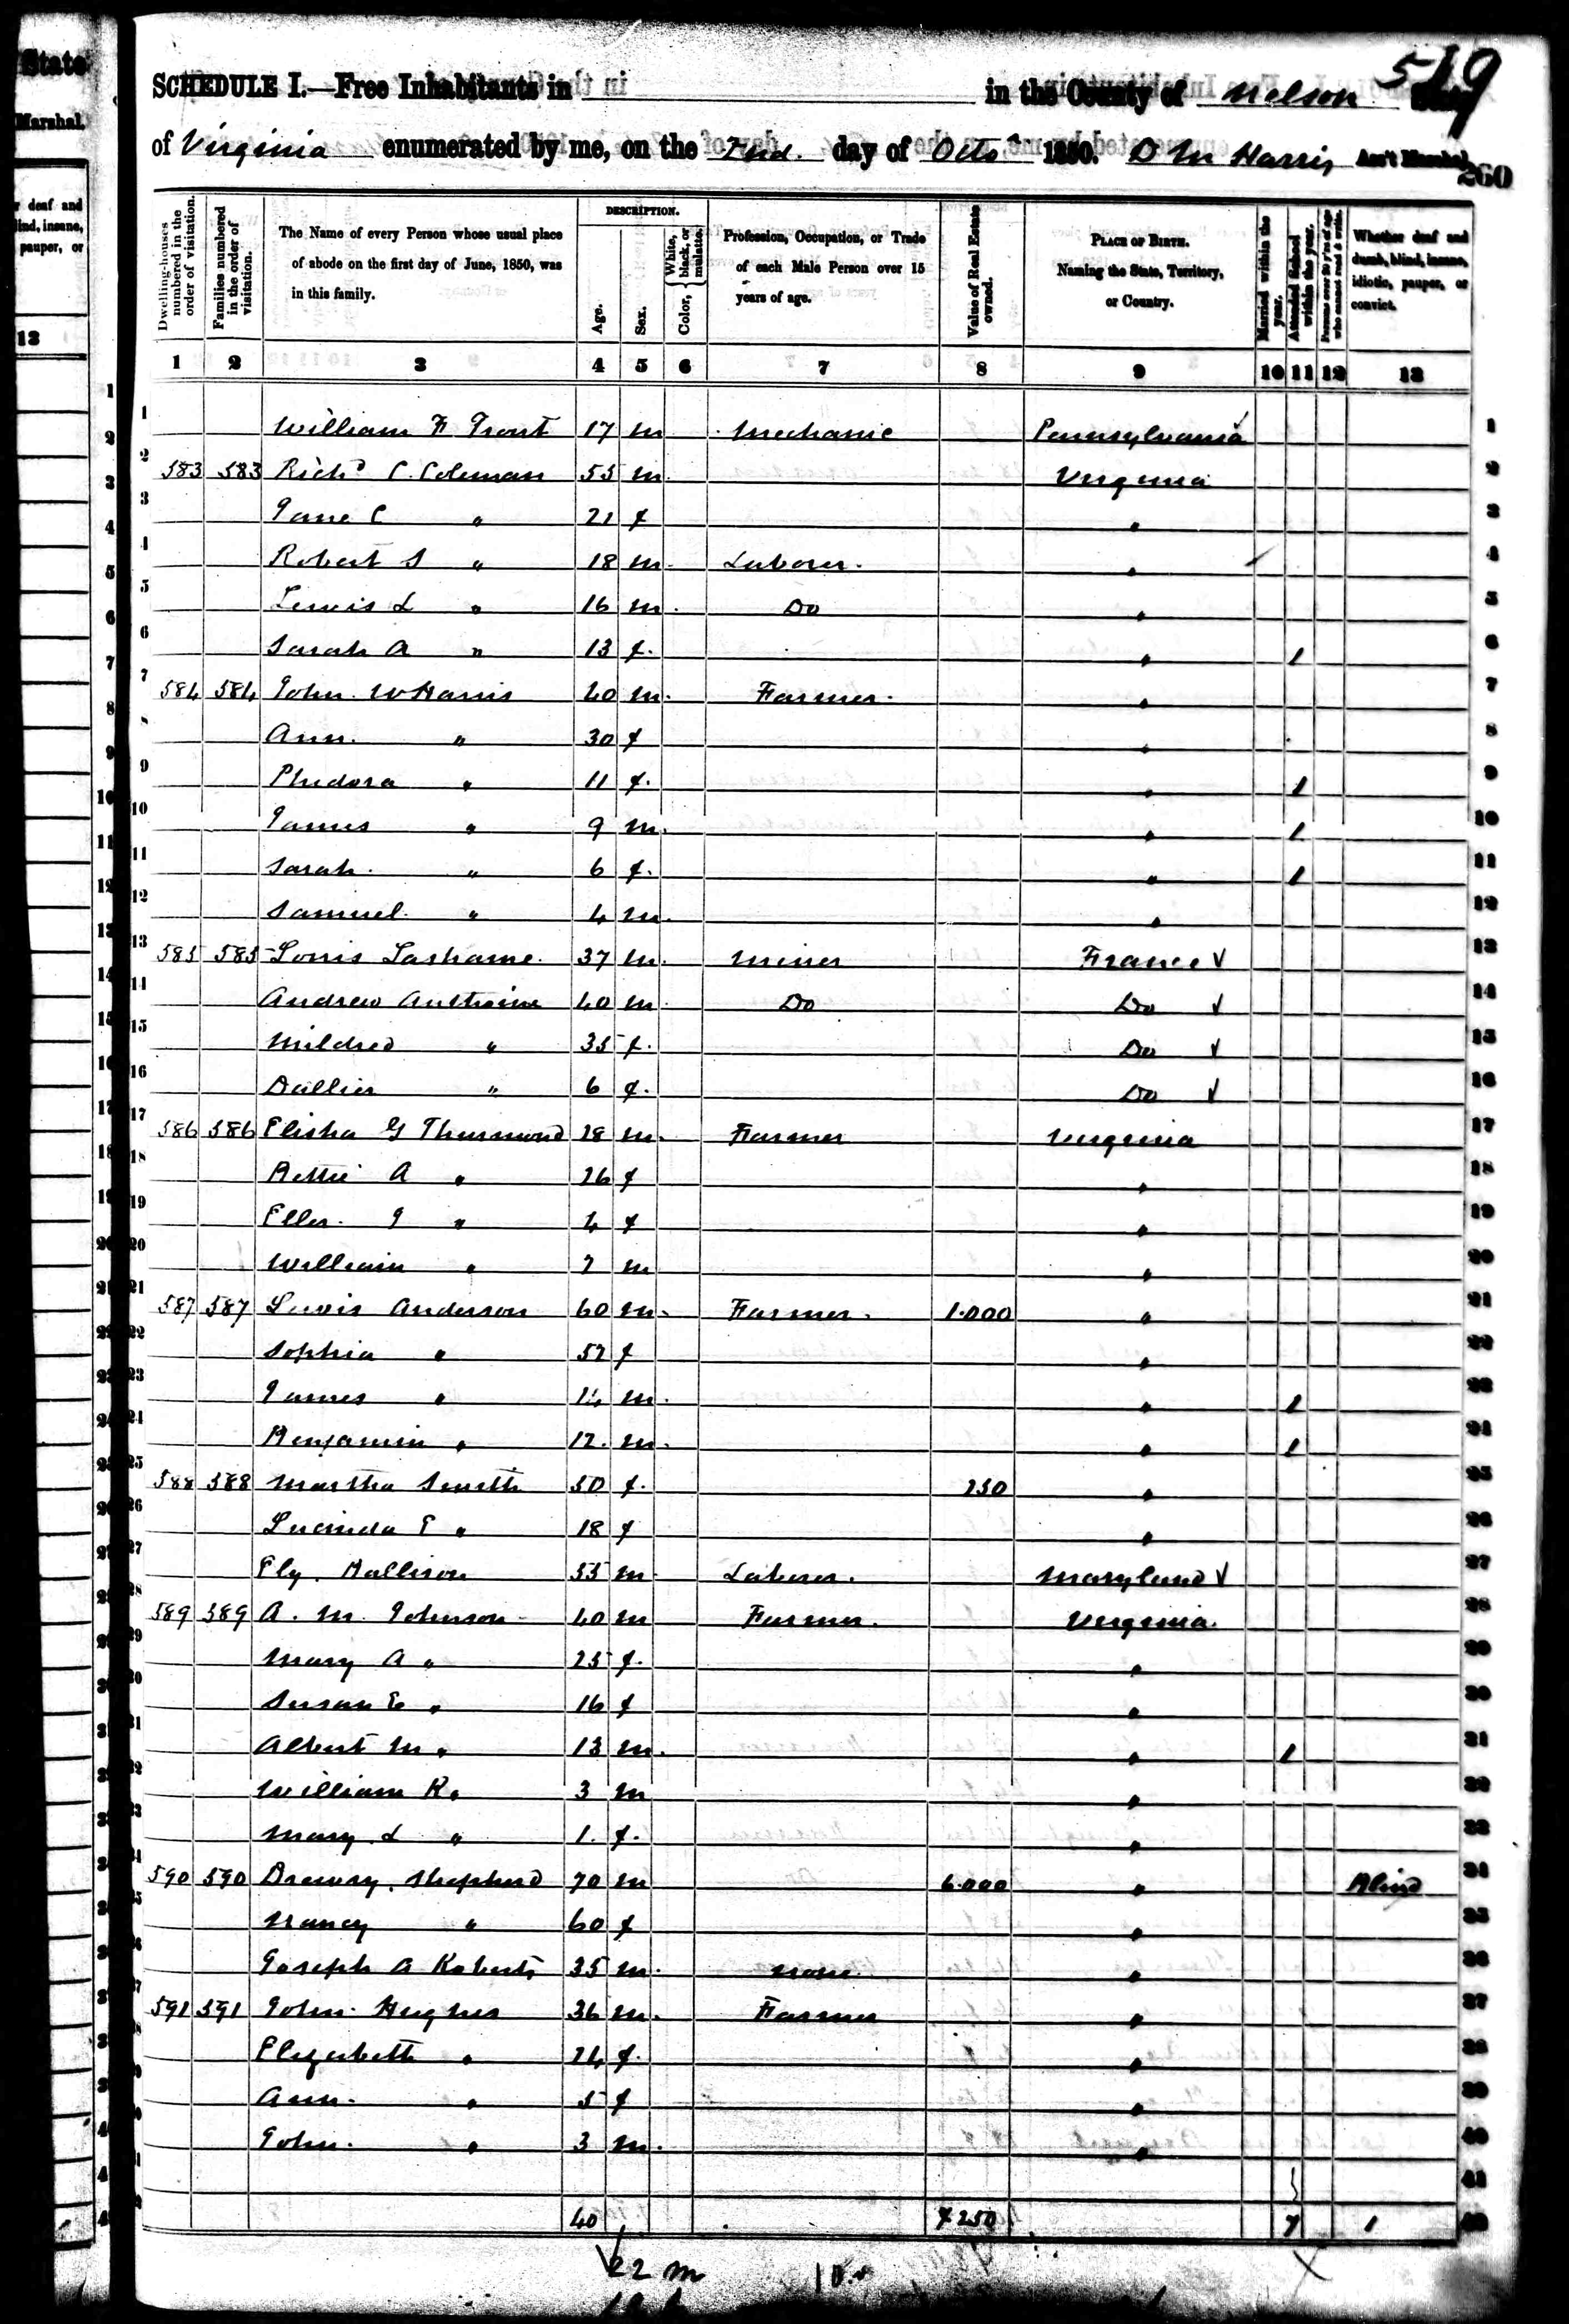 State
Marshal.
r deaf and
lind, insane,
pauper, or
13
519
SCHEDULE I.—Free Inhabitants in in the County of Nelson State
of Virginia enumerated by me, on the 2nd. day of Octo 1850. D M Harris Ass't Marshal
260
Dwelling-houses numbered in the order of visitation.
Families numbered in the order of visitation.
The Name of every Person whose usual place of abode on the first day of June, 1850, was in this family.
DESCRIPTION.
Age.
Sex.
Color, White, black, or mulatto.
Profession, Occupation, or Trade of each Male Person over 15 years of age.
Value of Real Estate owned.
PLACE OF BIRTH. Naming the State, Territory, or Country.
Married within the year.
Attended School within the year.
Persons over 20 y'rs of age who cannot read & write.
Whether deaf and dumb, blind, insane, idiotic, pauper, or convict.
1 2 3 4 5 6 7 8 9 10 11 12 13
1 William F Trout 17 m Mechanic Pennsylvania 1
2 583 583 Richd C. Coleman 55 m Virginia 2
3 Jane C " 21 f " 3
4 Robert S " 18 m Laborer. " 4
5 Lewis L " 16 m Do " 5
6 Sarah A " 13 f " 1 6
7 584 584 John W Harris 40 m Farmer " 7
8 Ann. " 30 f " 8
9 Phedora " 11 f " 1 9
10 James " 9 m " 1 10
11 Sarah " 6 f " 1 11
12 Samuel " 4 m " 12
13 585 585 Louis 37 m Miner France √ 13
14 Andrew 40 m Do Do √ 14
15 Mildred " 35 f Do √ 15
16 " 6 f Do √ 16
17 586 586 Elisha G Thurmond 28 m Farmer Virginia 17
18 Bettie A " 26 f " 18
19 Ellen J " 4 f " 19
20 William " 2 m " 20
21 587 587 Lewis Anderson 60 m Farmer. 1.000 " 21
22 Sophia " 52 f " 22
23 James " 14 m " 1 23
24 Benjamin " 12. m " 1 24
25 588 588 Martha Smith 50 f 250 " 25
26 Lucinda E " 18 f " 26
27 Ely. Mallison 55 m Laborer. Maryland √ 27
28 589 589 A. M. Johnson 40 m Farmer. Virginia. 28
29 Mary A " 25 f " 29
30 Susan E " 16 f " 30
31 Albert M " 13 m " 1 31
32 William R " 3 m " 32
33 Mary L " 1. f " 33
34 590 590 Drewry Shepherd 70 m 6.000 " Blind 34
35 Nancy " 60 f " 35
36 Joseph A Roberts 35 m None " 36
37 591 591 John Hughes 36 m Farmer " 37
38 Elizabeth " 24 f " 38
39 Ann. " 5 f " 39
40 John. " 3 m " 40
41
42 40 7250 7 1 42
22 m